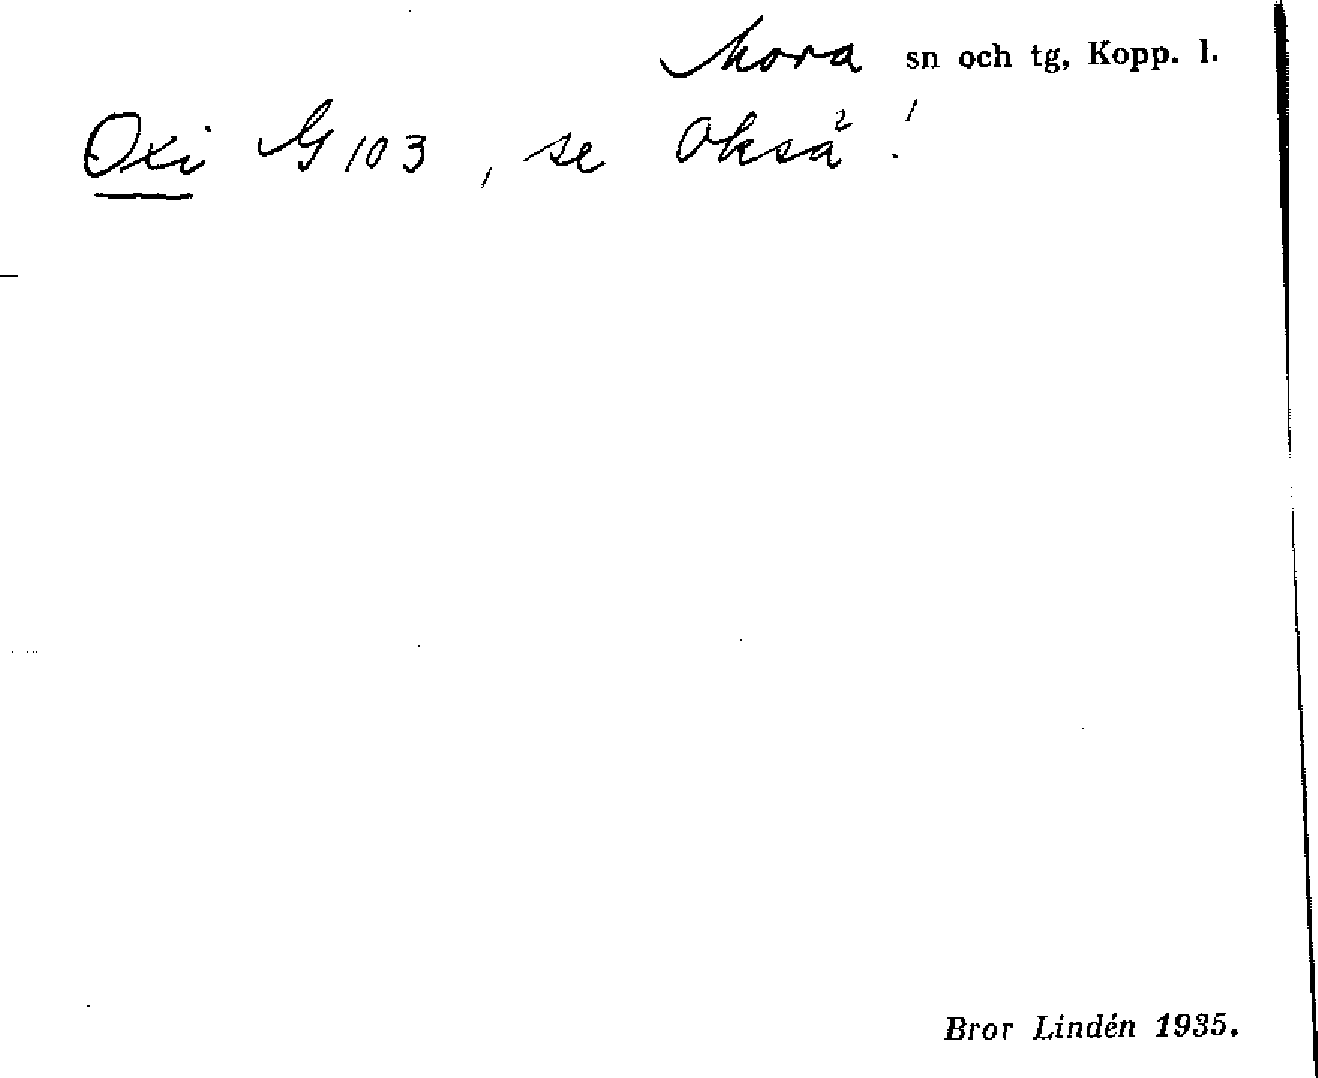 Mora sn och tg, Kopp. l.
Oxi G 103, se Okså!
Bror Lindén 1935.